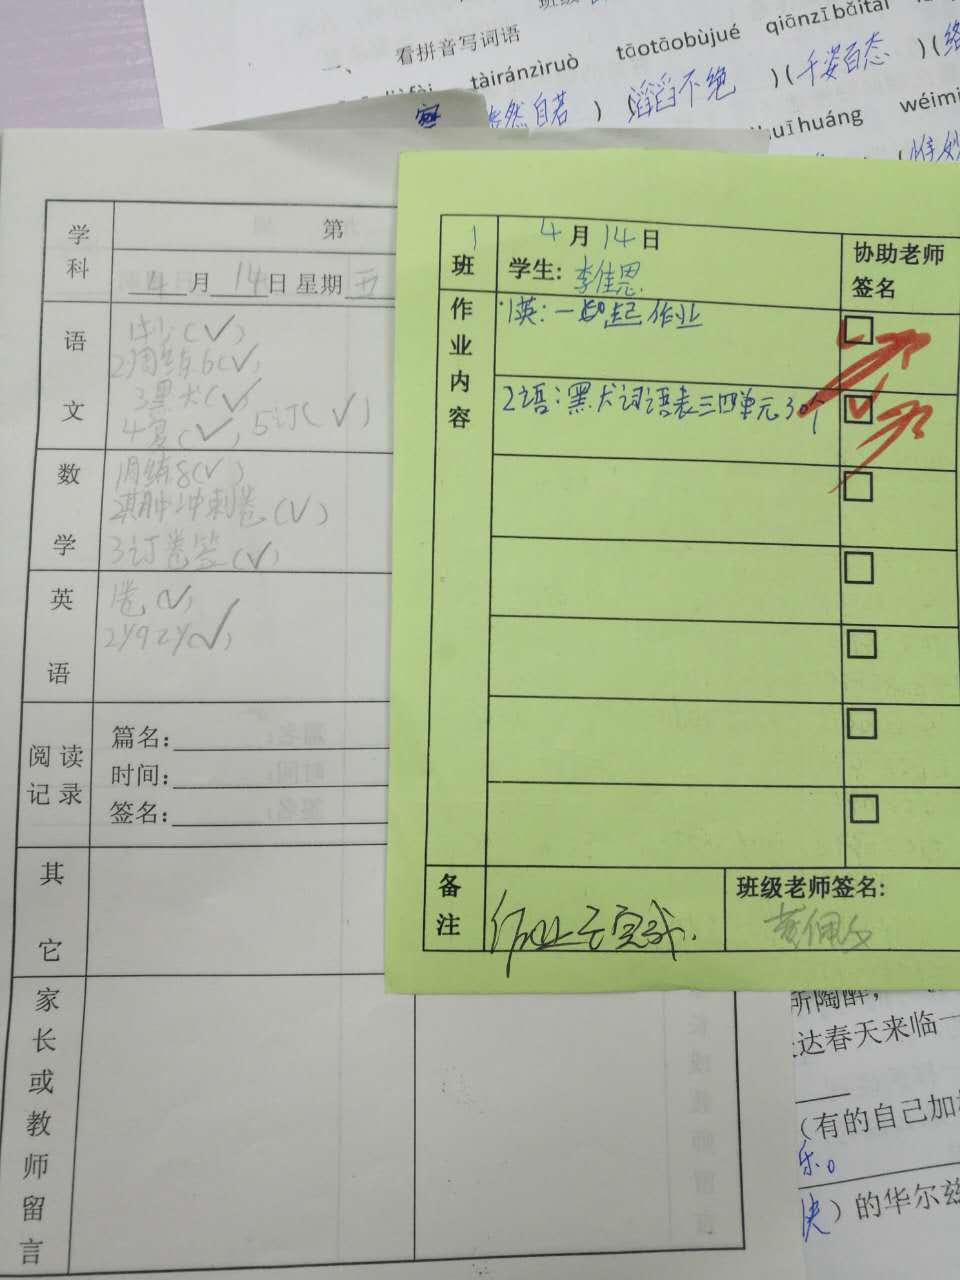 班级
一、 看拼音写词语
tàiránzìruò tāotāobùjué qiānzībǎitài
泰然自若 ) ( 滔滔不绝 ) ( 千姿百态 ) (
huīhuáng wéimi
学科
第
4月14日 星期五
语文
2周练6(✓)
3黑犬(✓)
4复(✓), 5订(✓)
数学
1周练8(✓)
2期中冲刺卷(✓)
3订卷签(✓)
英语
1卷(✓)
阅读记录
篇名:
时间:
签名:
其它
家长或教师留言
1班
4月14日
学生: 李佳思
协助老师签名
作业内容
1英: 一起作业
2语: 黑犬词语表三四单元30个
备注
作业已完成.
班级老师签名:
所陶醉,
达春天来临一
(有的自己加
乐。
决)的华尔兹